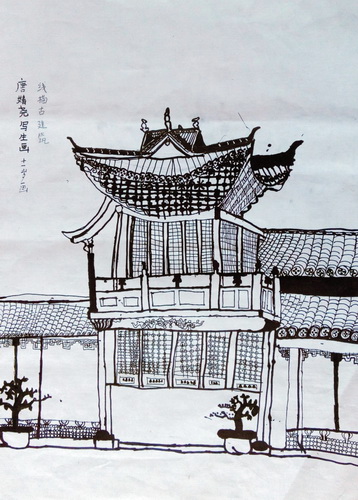 线描古建筑
唐靖尧写生画 十一岁画